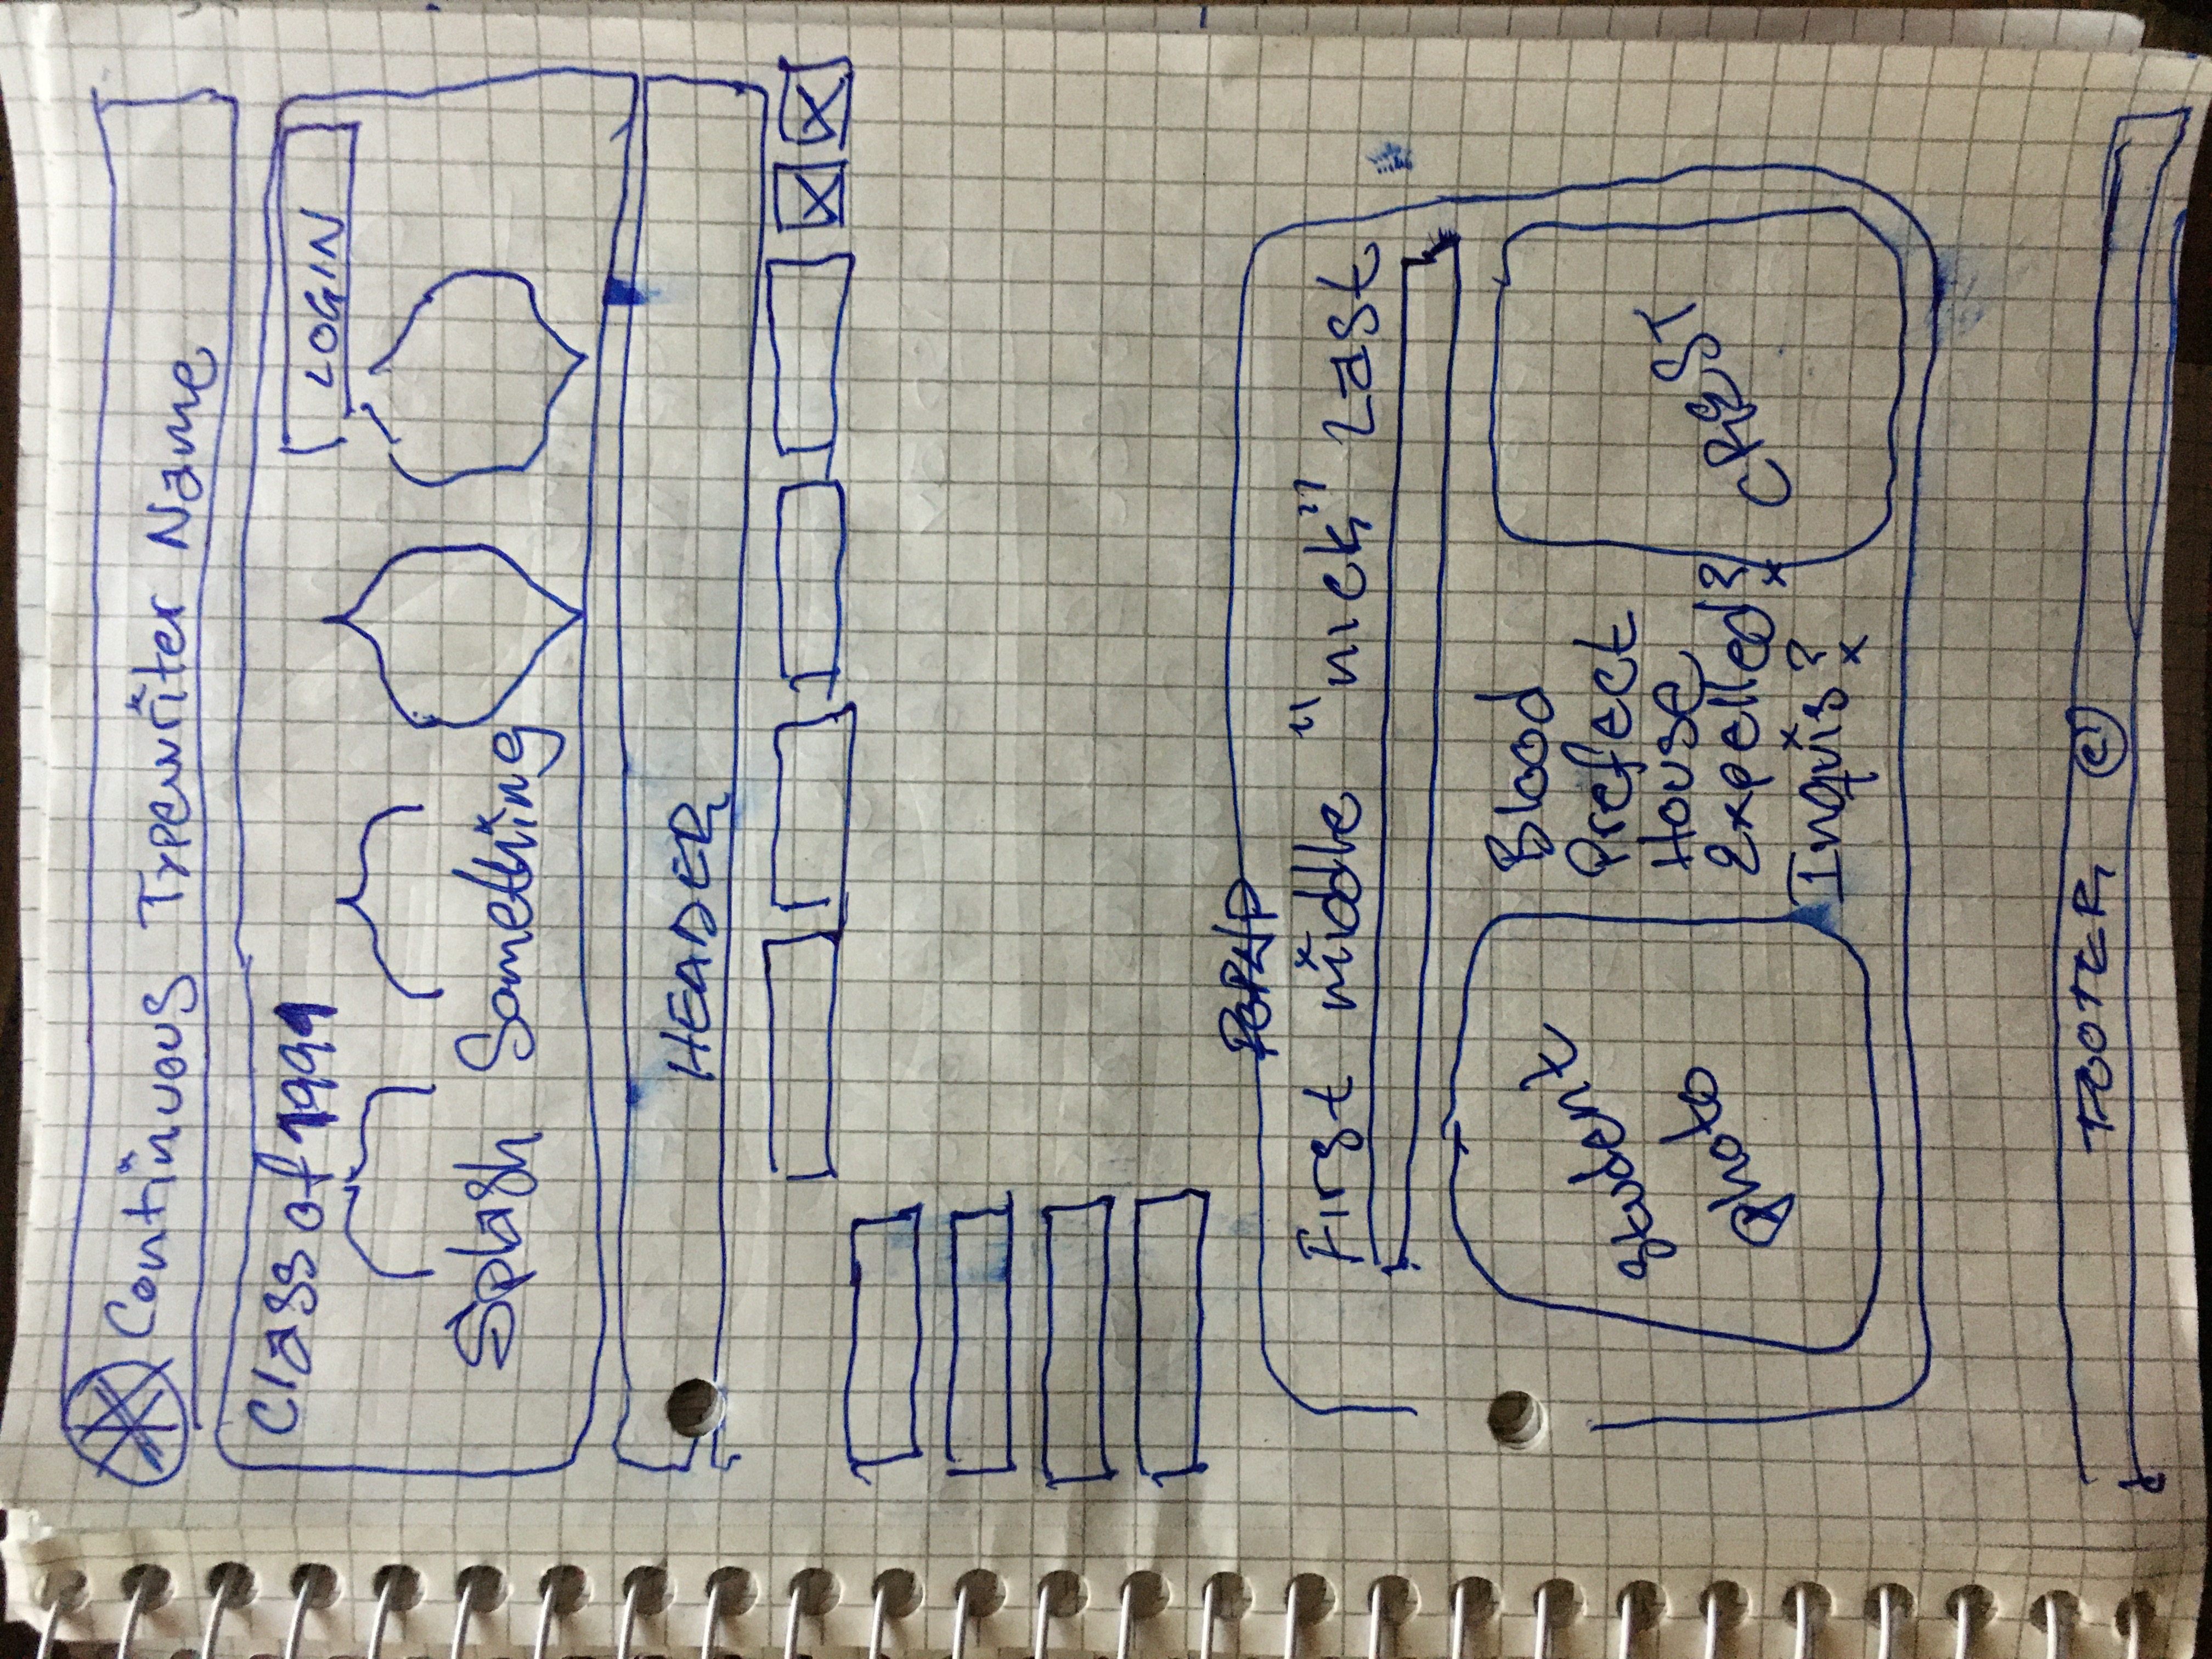 Continuous Typewriter Name
Class of 1991
LOGIN
Splash Something
HEADER
POPUP
First middle "nick" Last
Student
photo
Blood
Prefect
House
Expelled?
Inquis?
CREST
FOOTER ©